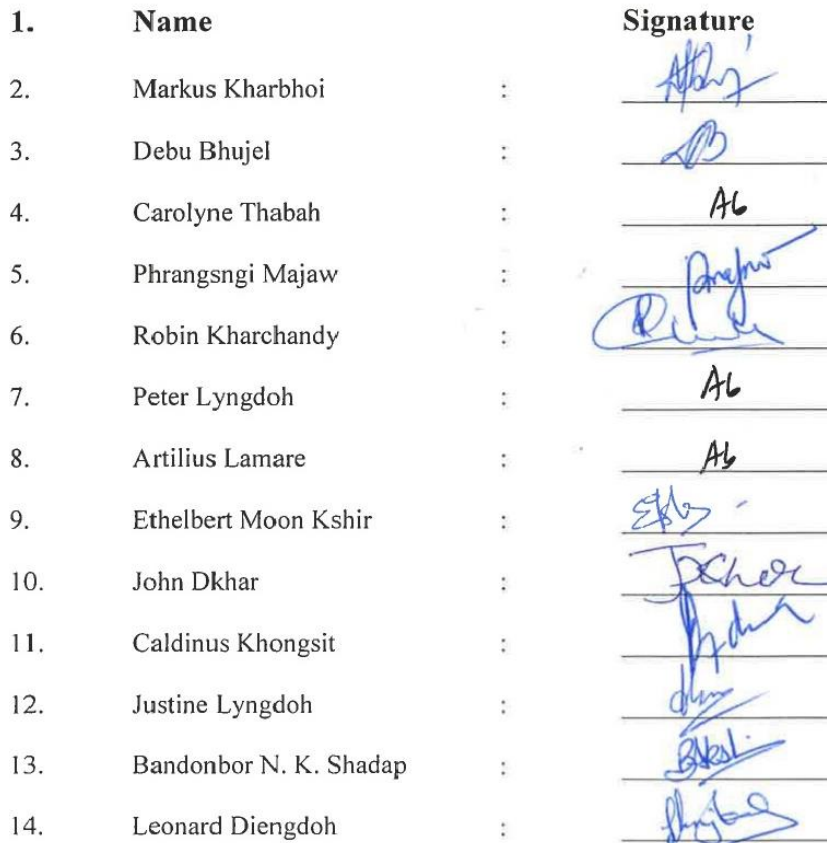 1. Name Signature
2. Markus Kharbhoi :
3. Debu Bhujel : DB
4. Carolyne Thabah : Ab
5. Phrangsngi Majaw :
6. Robin Kharchandy :
7. Peter Lyngdoh : Ab
8. Artilius Lamare : Ab
9. Ethelbert Moon Kshir :
10. John Dkhar :
11. Caldinus Khongsit :
12. Justine Lyngdoh :
13. Bandonbor N. K. Shadap :
14. Leonard Diengdoh :